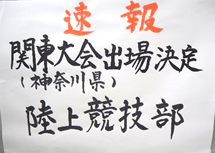 速報
関東大会出場決定
(神奈川県)
陸上競技部